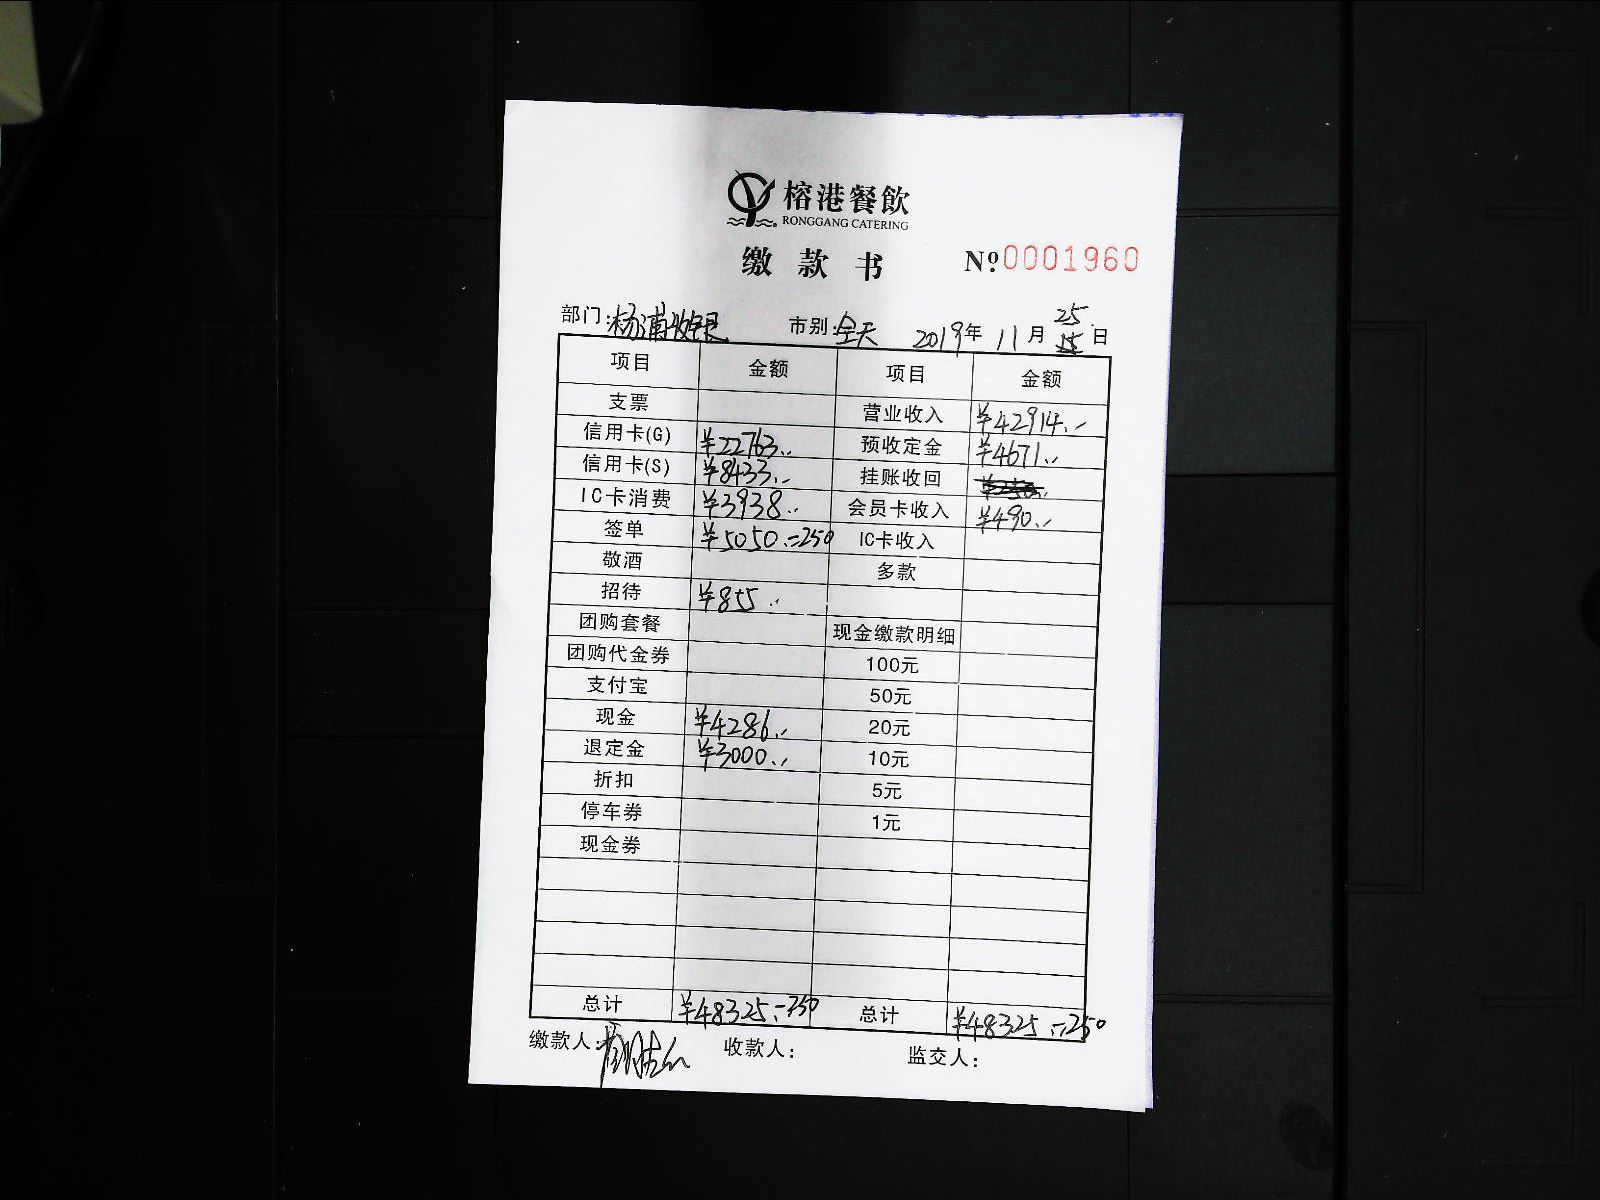 榕港餐飲
RONGGANG CATERING
缴款书 Nº:0001960
25
部门:杨浦收银 市别:全天 2019年11月15日
项目 金额 项目 金额
支票 营业收入 ¥42914.-
信用卡(G) ¥22763.- 预收定金 ¥4671.-
信用卡(S) ¥8433.- 挂账收回
IC卡消费 ¥3938.- 会员卡收入 ¥490.-
签单 ¥5050.-=250 IC卡收入
敬酒 多款
招待 ¥855.-
团购套餐 现金缴款明细
团购代金券 100元
支付宝 50元
现金 ¥4286.- 20元
退定金 ¥3000.- 10元
折扣 5元
停车券 1元
现金券
总计 ¥48325.-=250 总计 ¥48325.-=250
缴款人: 收款人: 监交人: